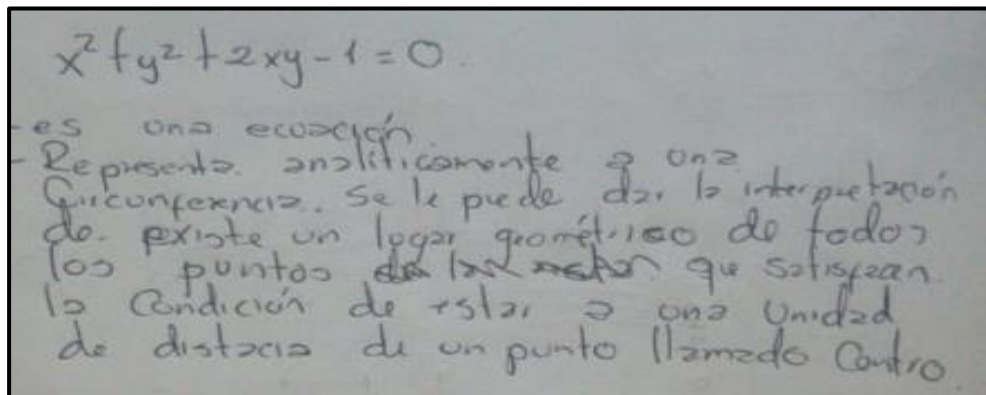 x² + y² + 2xy - 1 = 0.
- es una ecuación
- Representa analíticamente a una
Circunferencia. Se le puede dar la interpretación
de. existe un lugar geométrico de todos
los puntos que satisfacen
la condición de estar a una unidad
de distacia de un punto llamado Centro.